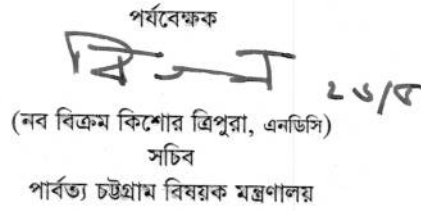 পর্যবেক্ষক
২৬/৫
(নব বিক্রম কিশোর ত্রিপুরা, এনডিসি)
সচিব
পার্বত্য চট্টগ্রাম বিষয়ক মন্ত্রণালয়